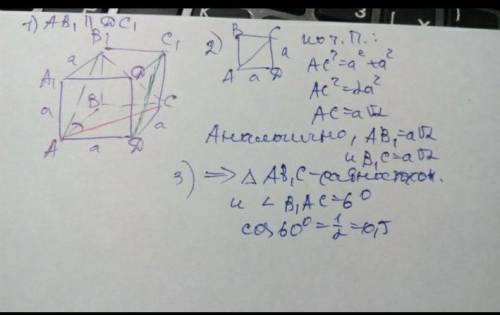 1) AB₁ ∏ DC₁
B₁ C₁
A₁ D₁
a
a
B C
a
A a D
2) B C
a
A a D
по т. П.:
AC² = a² + a²
AC² = 2a²
AC = a√2
Аналогично, AB₁ = a√2
и B₁C = a√2
3) ⇒ △ AB₁C - равностор.
и ∠ B₁AC = 6⁰
cos 60⁰ = 1/2 = 0,5